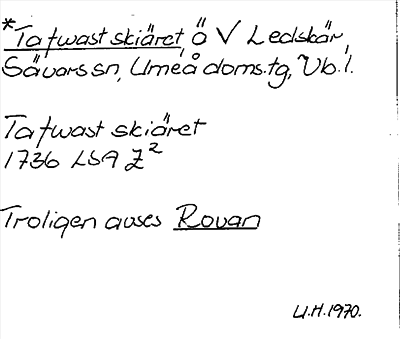 *Tafwast skiäret, ö V Ledskär,
Sävars sn, Umeå doms.tg, Vb.l.
Tafwast skiäret
1736 LSA Z²
Troligen avses Rovan
U.H. 1970.